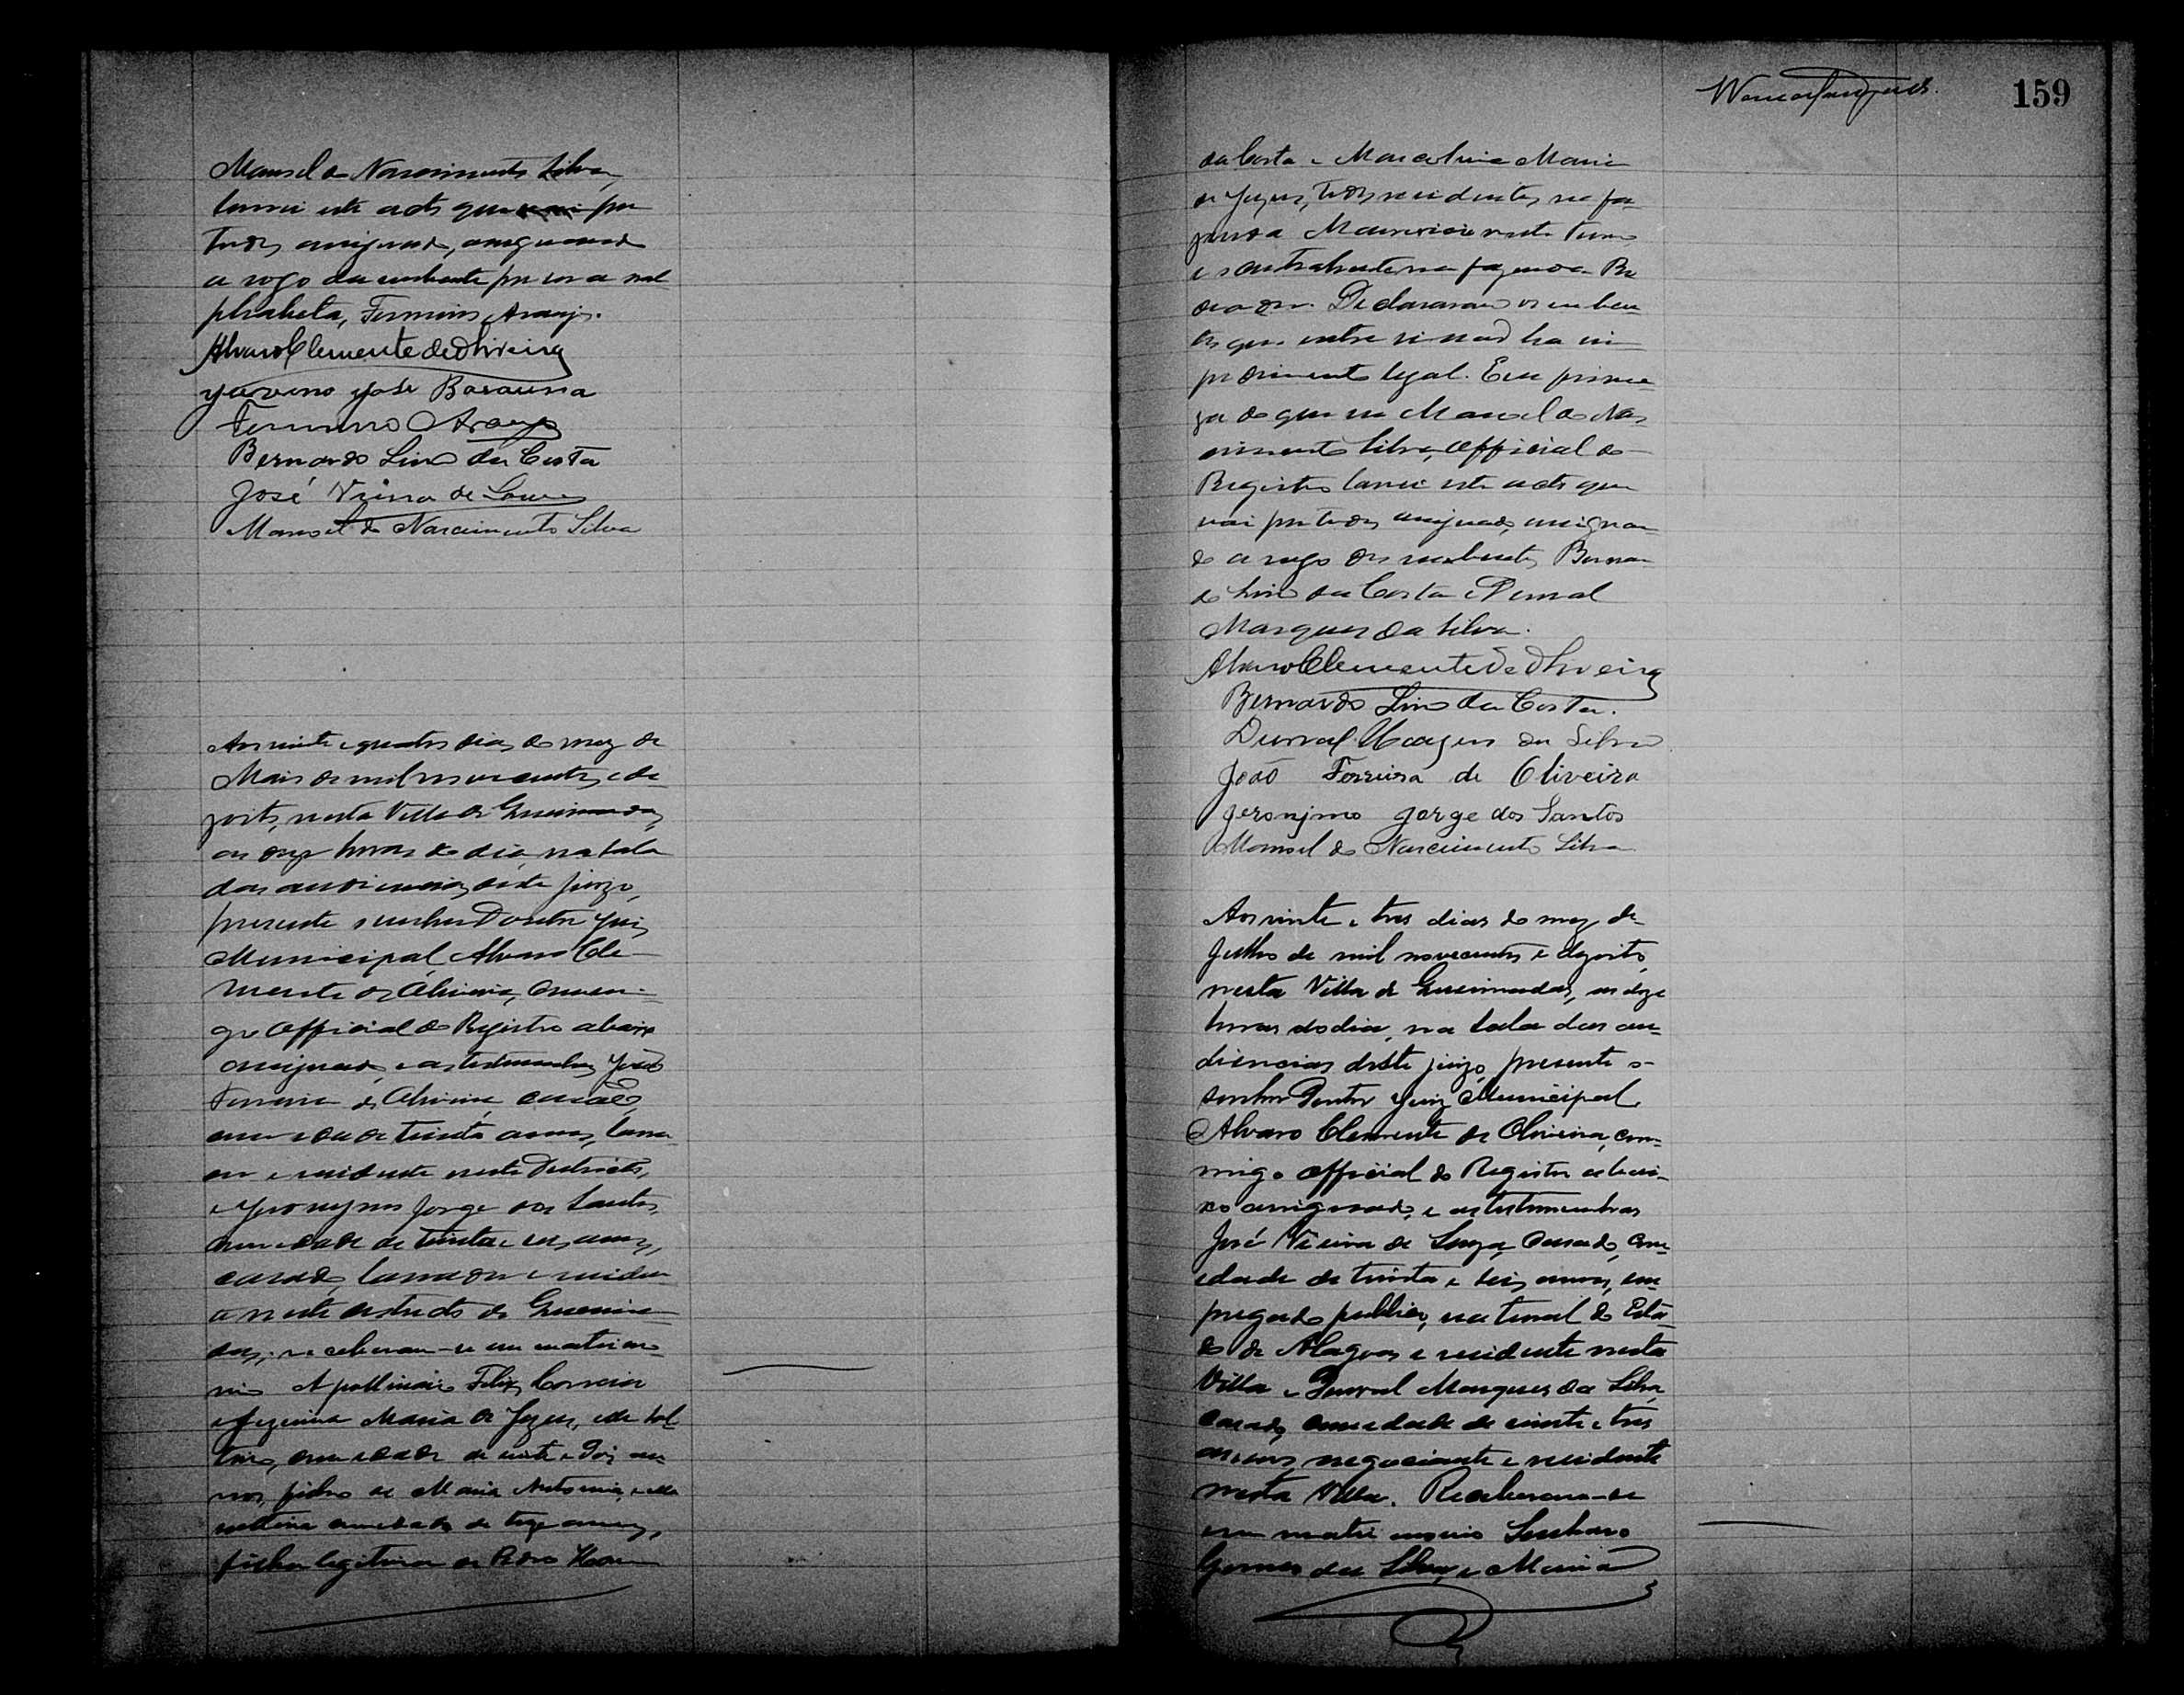 Manoel do Nascimento Silva,
lavrei este acto que por
todos assignado, assignando
a rogo da nubente por ser a nal
phabeta, Firmino Araujo.
Alvaro Clemente de Oliveira
José Barauna
Firmino Araujo
Bernardo Lino da Costa
José Vieira de Souza
Manoel do Nascimento Silva
Aos vinte e quatro dias do mez de
Maio de mil novecentos e de
zoito, nesta Villa de Queimadas,
as onze horas do dia, na sala
das audiencias deste juizo,
presente o senhor Doutor Juiz
Municipal, Alvaro Cle-
mente de Oliveira, commi-
go Official do Registro abaixo
assignado, e as testemunhas João
Ferreira de Oliveira, casado,
com edade de trinta annos, lavra
dor e residente neste Districto,
e Jeronymo Jorge dos Santos,
com edade de trinta e seis annos,
casado, lavrador e residen
te neste districto de Queima
das; receberam-se em matrimo-
nio Apollinario Felix Correia
e Jezuina Maria de Jezus, elle sol
teiro, com edade de vinte e dois an
nos, filho de Maria Antonia, e ella
solteira com edade de treze annos,
filha legitima de Pedro
159
da Costa e Marcolina Maria
de Jezus, todos residentes na fa-
zenda neste termo
e os contrahentes na fazenda
Declararam os nuben
tes que entre si não ha im
pedimento legal. E em firme
za do que eu Manoel do Nas
cimento Silva, Official do
Registro lavrei este acto que
vai por todos assignado, assignan
do a rogo dos nubentes Bernar
do Lino da Costa e Durval
Marques da Silva.
Alvaro Clemente de Oliveira
Bernardo Lino da Costa.
Durval Marques da Silva
João Ferreira de Oliveira
Jeronymo Jorge dos Santos
Manoel do Nascimento Silva
Aos vinte e tres dias do mez de
Julho de mil novecentos e dezoito,
nesta Villa de Queimadas, as doze
horas do dia, na sala das au-
diencias deste juizo, presente o
senhor Doutor Juiz Municipal,
Alvaro Clemente de Oliveira, com-
migo official do Registro abai-
xo assignado, e as testemunhas
José Vieira de Souza, casado, com
edade de trinta e seis annos, em
pregado publico, natural do Esta-
do de Alagoas e residente nesta
Villa e Durval Marques da Silva,
casado, com edade de vinte e tres
annos, negociante e residente
nesta Villa. Receberam-se
em matrimonio
Gomes da Silva, e Maria